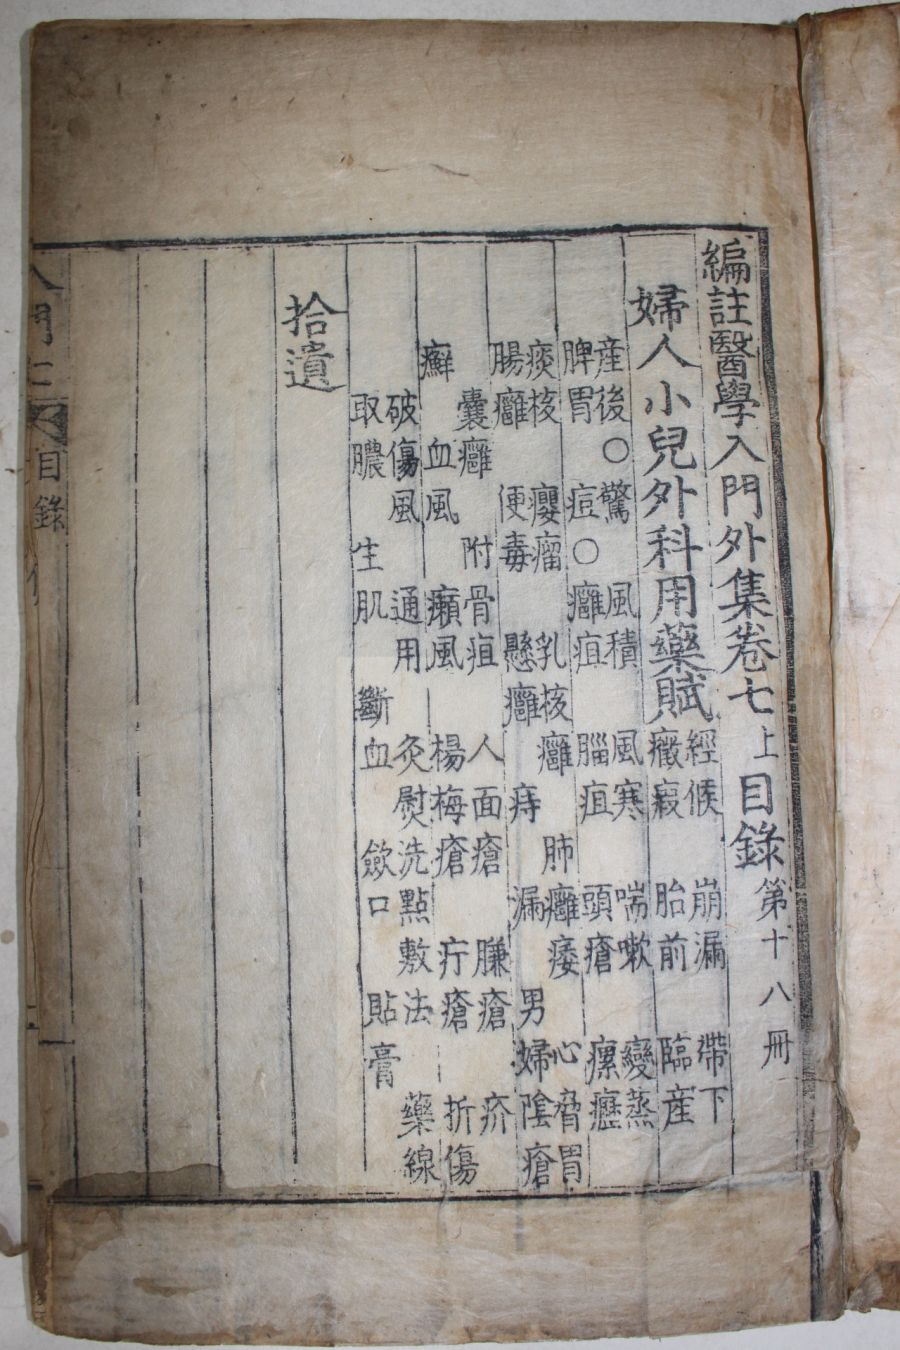 編註醫學入門外集卷七 上 目錄 第十八冊
婦人小兒外科用藥賦 經候 崩漏 帶下
癥瘕 胎前 臨産
産後○驚 風積 風寒 喘嗽 變蒸
脾胃 痘○癰疽 腦疽 頭瘡 瘰癧
痰核 癭瘤 乳核癰 肺癰痿 心脅胃
腸癰 便毒 懸癰 痔 漏 男婦陰瘡
囊癰 附骨疽 人面瘡 臁瘡 疥
癬 血風 癩風 楊梅瘡 疔瘡 折傷
破傷風 通用 灸熨洗點敷法 藥線
取膿 生肌 斷血 歛口 貼膏
拾遺
門 目錄